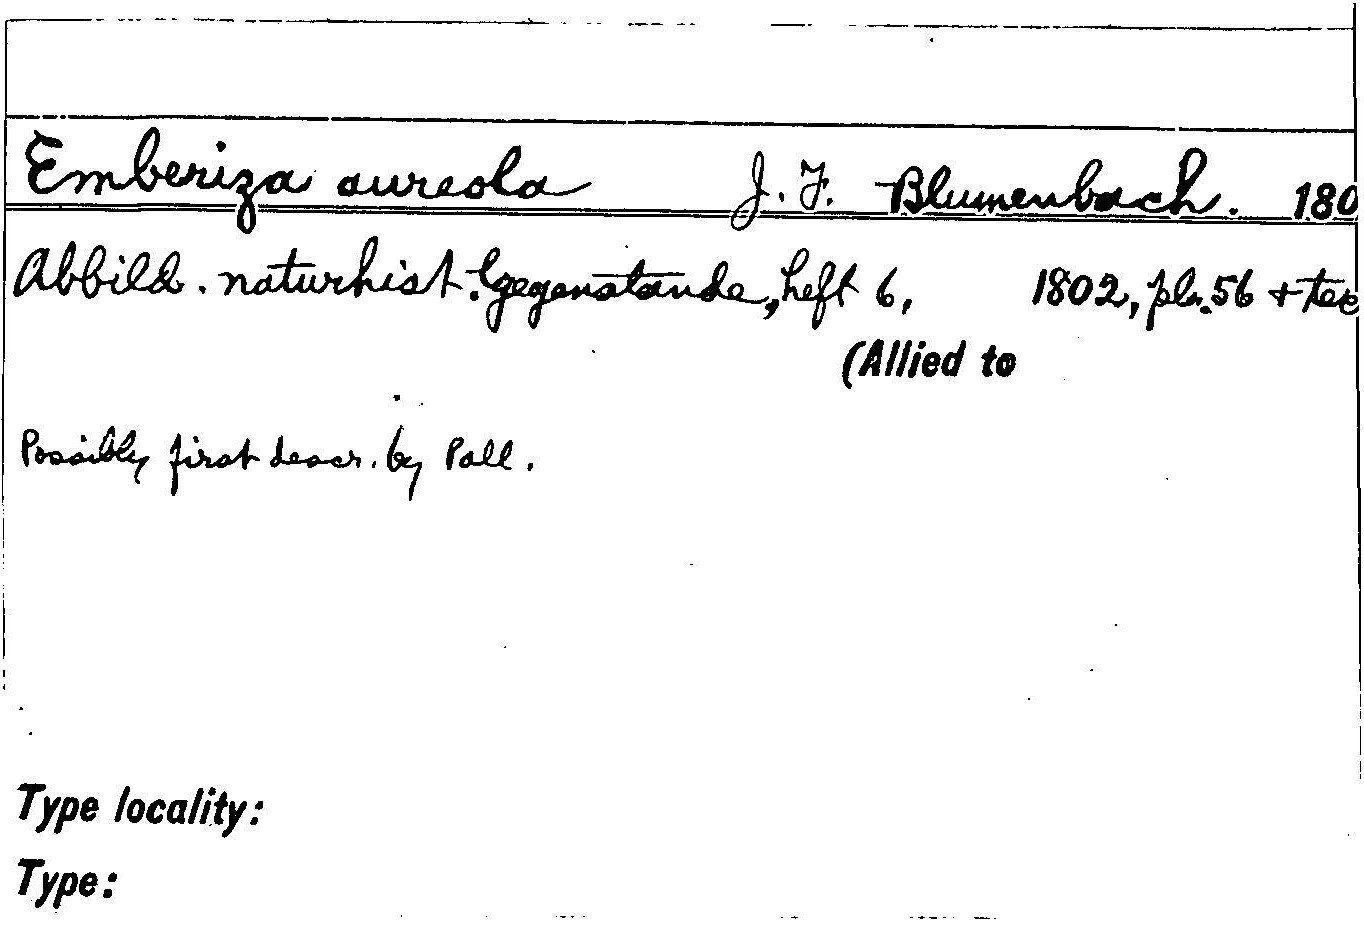 Emberiza aureola J. F. Blumenbach. 180
Abbild. naturhist. Gegenstande, heft 6, 1802, pl. 56 + tex
(Allied to
Possibly first descr. by Pall.
Type locality:
Type: